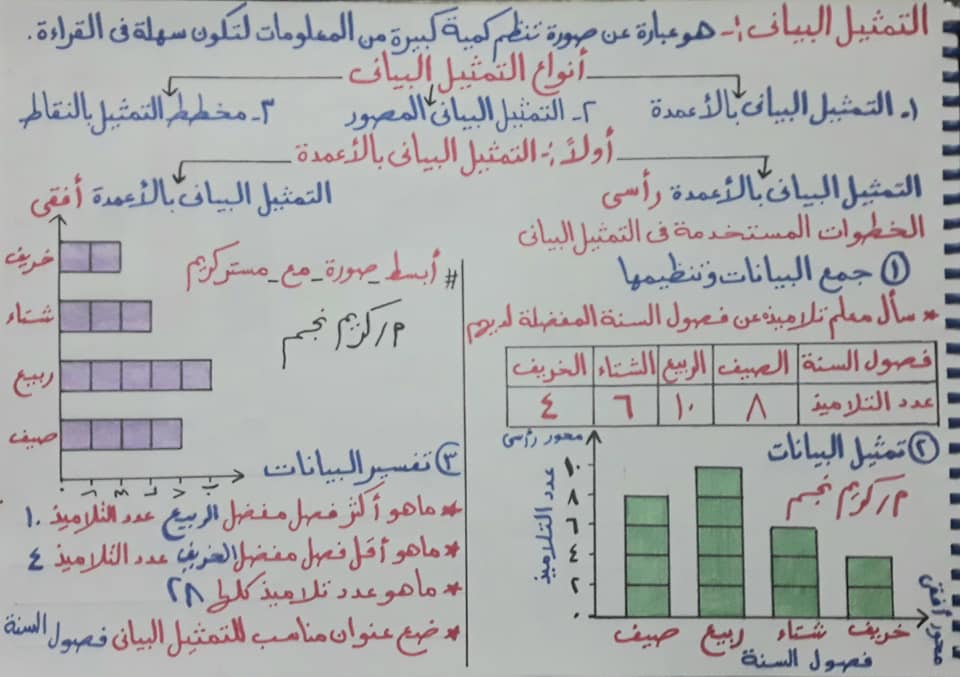 التمثيل البيانى :- هو عبارة عن صورة تنظم كمية كبيرة من المعلومات لتكون سهلة فى القراءة .
أنواع التمثيل البيانى
١- التمثيل البيانى بالأعمدة
٢- التمثيل البيانى المصور
٣- مخطط التمثيل بالنقاط
أولاً :- التمثيل البيانى بالأعمدة
التمثيل البيانى بالأعمدة رأسى
التمثيل البيانى بالأعمدة أفقى
الخطوات المستخدمة فى التمثيل البيانى
① جمع البيانات وتنظيمها
* سأل معلم تلاميذه عن فصول السنة المفضلة لديهم
فصول السنة الصيف الربيع الشتاء الخريف
عدد التلاميذ ٨ ١٠ ٦ ٤
② تمثيل البيانات
م/ كريم نجم
محور رأسى
عدد التلاميذ
١٠
٨
٦
٤
٢
٠
صيف ربيع شتاء خريف
فصول السنة
محور أفقى
خريف
شتاء
ربيع
صيف
# أبسط_صورة_مع_مستر كريم
م/ كريم نجم
③ تفسير البيانات
* ماهو أكثر فصل مفضل الربيع عدد التلاميذ ١٠
* ماهو أقل فصل مفضل الخريف عدد التلاميذ ٤
* ماهو عدد تلاميذ كلها ٢٨
* ضع عنوان مناسب للتمثيل البيانى فصول السنة